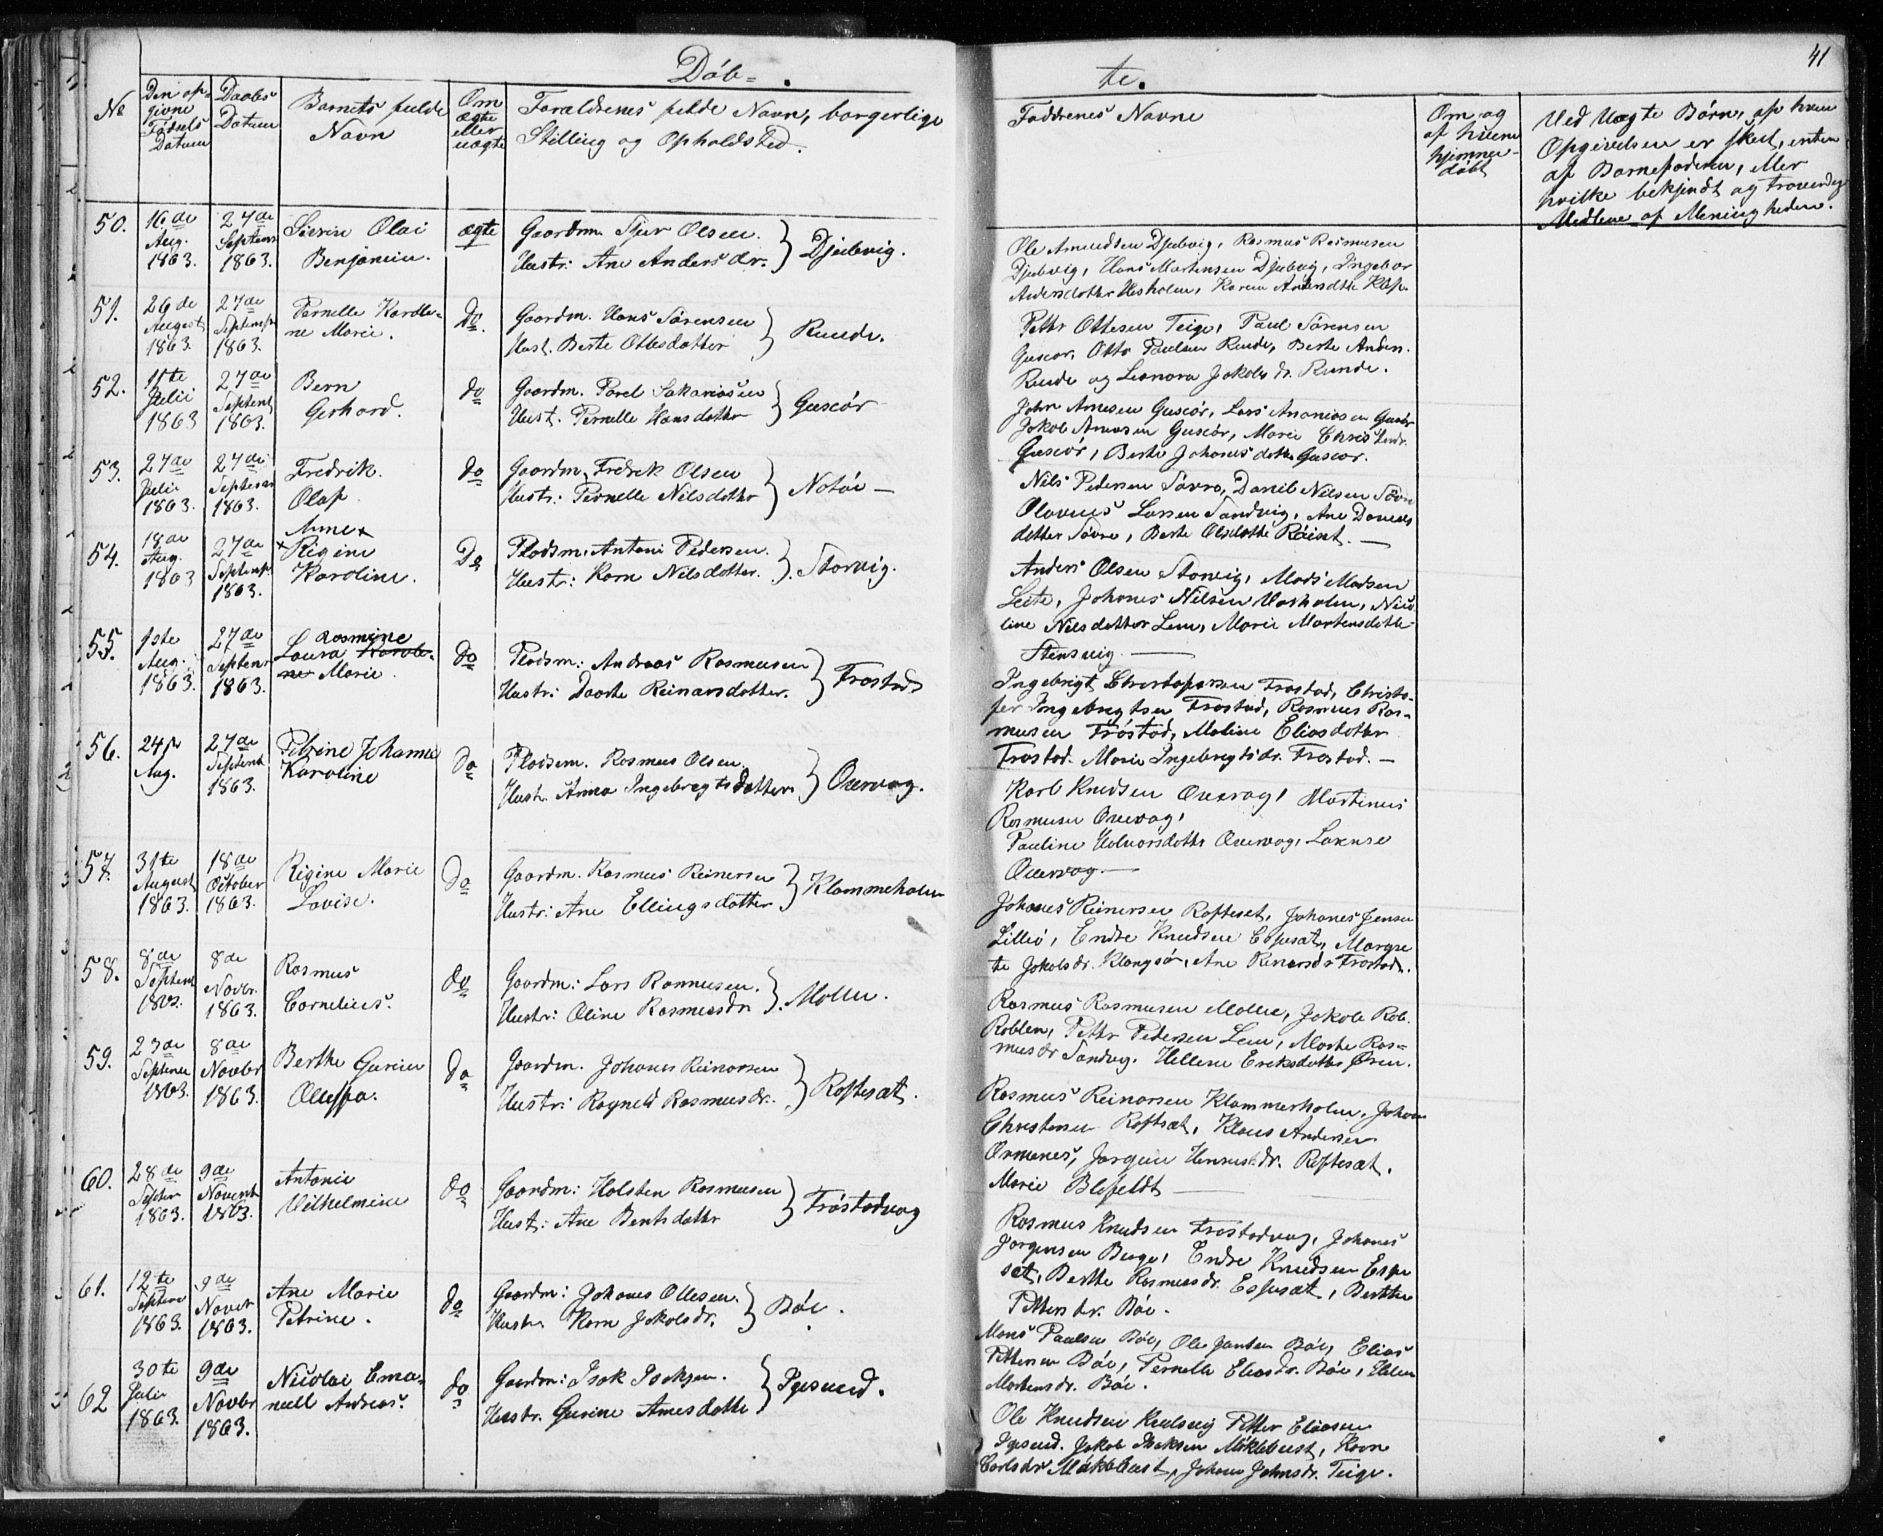 Döb-
te.
41
No
Den op-
givne
Fødsels
Datum
Daabs
Datum
Barnets fulde
Navn
Om
ægte
eller
uægte
Forældrenes fulde Navn, borgerlige
Stilling og Opholdsted.
Faddrenes Navne
Om og
af hvem
hjemme-
døbt
Ved Uægte Børn, af hvem
Opgivelsen er skeet, enten
af Barnefaderen, eller
hvilke bekjendt og troværdige
Medlem af Menigheden.
50.
16de
Aug.
1863.
27de
Septem
1863.
Sivrin Olai
Benjamin.
ægte
Gaardm. Sjur Olsen.
Hustr: Ane Andersdr.
Djubvig.
Ole Amundsen Djubvig, Rasmus Rasmusen
Djubvig, Hans Martensen Djubvig, Ingebor
Andersdotter Husholm, Karen
51.
26de
August
1863.
27de
Septemp
1863.
Pernelle Karole-
ne Marie.
Do.
Gaardm. Hans Sørensen
Hust. Berte Ottesdotter
Runde.
Petter Ottesen Teige, Paul Sørensen
Guscør, Otto Paulsen Runde, Berte Anders.
Runde og Leonora Jakobsdr. Runde.
52.
11te
Julii
1863
27de
Septemb
1863.
Bern
Gerhard.
do
Gaardm. Parel Sakariasen
Hust. Pernelle Hansdotter
Guscør
John Arnesen Guscør, Lars Ananiasen Guscør
Jakob Arnesen Guscør, Marie Christ
Guscør, Berte Johanesdotter Guscør.
53.
27de
Julii
1863.
27de
Septemr
1863.
Fredrik.
Olaf
do
Gaardm. Fredrik Olsen
Hustr: Pernelle Nilsdotter
Notøe —
Nils Pedersen Søvre, Daniel Nilsen Søvre
Olavus Larsen Sandvig, Ane Daniels
dotter Søvre, Berte Olsdotter Røiset. —
54.
18de
Aug.
1863
27de
Septemp.
1863.
Anne x
x Rigine
Karoline.
Do
Pladsm: Antoni Pedersen.
Hustr: Karn Nilsdotter.
Storvig.
Anders Olsen Storvig, Mads Madsen
Leite, Johanes Nilsen Voxholm,
line Nilsdotter Lem, Marie Martensdotter
Stensvig. —
55.
1ste
Aug.
1863.
27de
Septemr
1863.
Rasmine
Laura Karoli-
ne Marie.
do
Pladsm: Andreas Rasmusen
Hustr: Daarte Reinarsdotter.
Frostad
Ingebrigt Christophersen Frostad, Christo-
fer Ingebrigtsen Frøstad, Rasmus Ras-
musen Frøstad, Maline Eliasdotter
Frostad. Marie Ingebrigtsdr. Frostad. —
56.
24
Aug.
27de
Septemb
1863.
Petrine Johanna
Karoline
do
Pladsem. Rasmus Olsen.
Hust. Anna Ingebregtsdotter.
Overvog.
Karl Knudsen Overvog, Martinus
Rasmusen Overvog,
Pauline Halvorsdotter Overvog, Lavense
Overvog —
57.
31te
August
1863.
18de
October
1863.
Rigine Marie
Lovise.
Do
Gaardm. Rasmus Reinersen
Hustr: Ane Ellingsdotter
Klammeholm
Johanes Reinersen Roftesæt, Johanes Jensen
Lilleø, Endre Knudsen Espesæt, Margre
te Jakobsdr. Klongsør, Ane Reinersdr Frostad.
58.
8de
Septem
1863.
8de
Novbr.
1863.
Rasmus
Cornelius.
do
Gaardm: Lars Rasmusen.
Hustr: Oline Rasmusdr.
Molle.
Rasmus Rasmusen Molle, Jakob Rob.
Roblen, Petter Pedersen Lem, Marte Ras-
musdr Sandvig. Hellene Ericksdotter Øren.
59.
23de
Septemr
1863.
8de
Novbr
1863.
Berthe Gurien
Olleffa.
Do
Gaardm. Johanes Reinarsen
Hustr: Ragneld Rasmusdr.
Roftesæt.
Rasmus Reinarsen Klammerholm, Johan
Christensen Roftesæt, Klaus Andersen
Ormenes, Jorgine Hennesdr. Roftesæt.
Marie Blefeldt —
60.
28de
Septer
1863.
9de
Novemb
1863.
Antonie
Vilhelmine
do
Gaardm: Holsten Rasmusen
Hust: Ane Berntsdotter
Frøstadvog
Rasmus Knudsen Frøstadvog, Johanes
Jorgensen Berge, Endre Knudsen Espe
sæt, Berthe Rasmusdr. Espesæt, Berthe
Pettersdr. Bøe.
61.
12te
Septem
1863.
9de
Novbr
1863.
Ane Marie
Petrine.
do
Gaardm: Johanes Ollesen.
Hustr. Karn Jakobsdr.
Bøe.
Mons Paulsen Bøe, Ole Jantsen Bøe, Elias
Pettersen Bøe, Pernelle Eliasdr. Bøe, Ellen
Mortensdr. Bøe.
62
30te
Julii
1863.
9de
Novbr
1863.
Nicolai Ema-
nuell Andreas.
do
Gaardm: Isak Isaksen.
Hustr. Gurine Arnesdotter
Igesund.
Ole Knudsen Kvelsvig Petter Eliasen
Igesund. Jakob Isaksen Møklebust, Karn
Carlsdr. Møklebust, Johane Johnsdr. Teige.